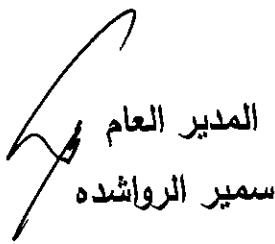 المدير العام
سمير الرواشده